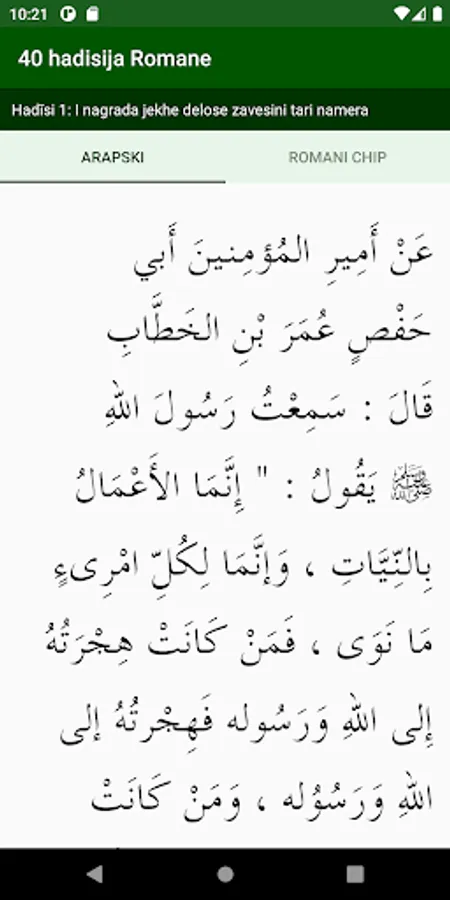 10:21
40 hadisija Romane
Hadīsi 1: I nagrada jekhe delose zavesini tari namera
ARAPSKI
ROMANI CHIP
عَنْ أَمِيرِ المُؤمِنينَ أَبي
حَفْصٍ عُمَرَ بْنِ الخَطَّابِ
قَالَ : سَمِعْتُ رَسُولَ اللهِ
ﷺ يَقُولُ : " إِنَّمَا الأَعْمَالُ
بِالنِّيَّاتِ ، وَإنَّمَا لِكُلِّ امْرِىءٍ
مَا نَوَى ، فَمَنْ كَانَتْ هِجْرَتُهُ
إِلى اللهِ وَرَسُوله فَهِجْرتُهُ إلى
اللهِ وَرَسُوُله ، وَمَنْ كَانَتْ